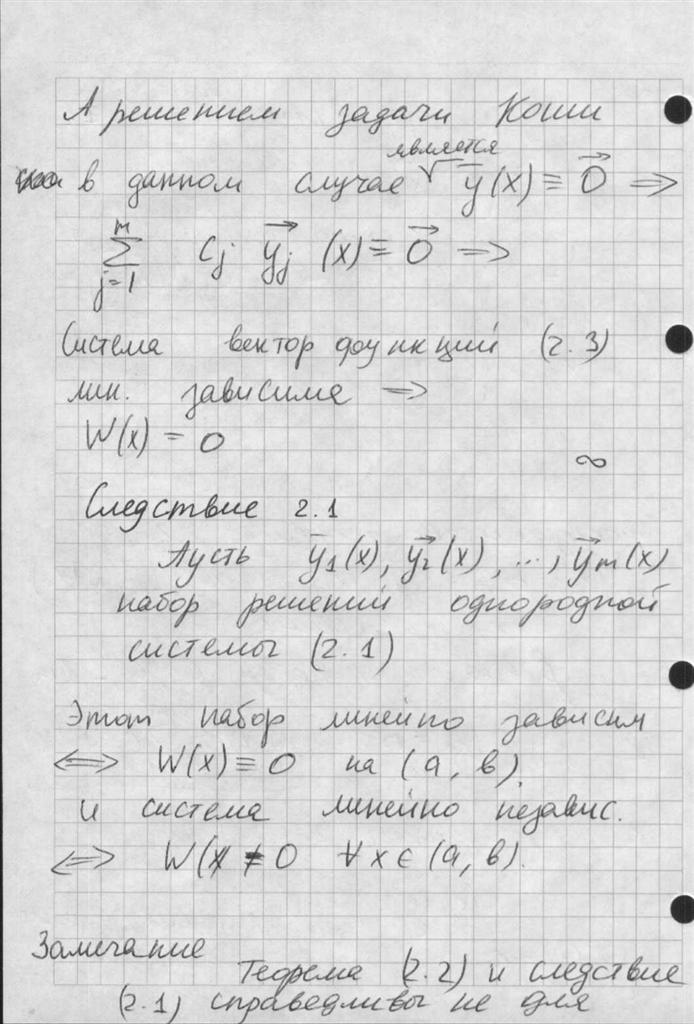 А решением задачи Коши
в данном случае √ является ȳ(x) ≡ 0⃗ ⇒
∑_{j=1}^{m} C_j y⃗_j (x) ≡ 0⃗ ⇒
Система вектор функций (2.3)
лин. зависима ⇒
W(x) = 0
∞
Следствие 2.1
Пусть ȳ₁(x), y⃗₂(x), ..., y⃗ₘ(x)
набор решений однородной
системы (2.1)
Этот набор линейно зависим
⇔ W(x) ≡ 0 на (a, b)
и система линейно независ.
⇔ W(x ≠ 0 ∀ x ∈ (a, b).
Замечание
Теорема (2.2) и следствие
(2.1) справедливы не для